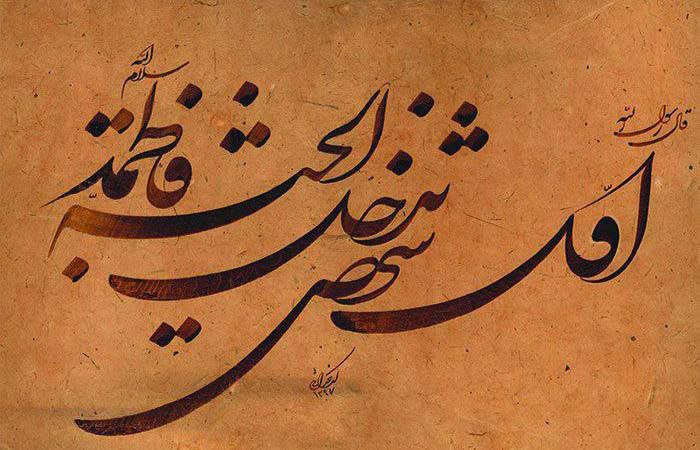 قال رسول الله
اول شخص تدخل الجنة فاطمة
سلام الله
۱۳۹۷